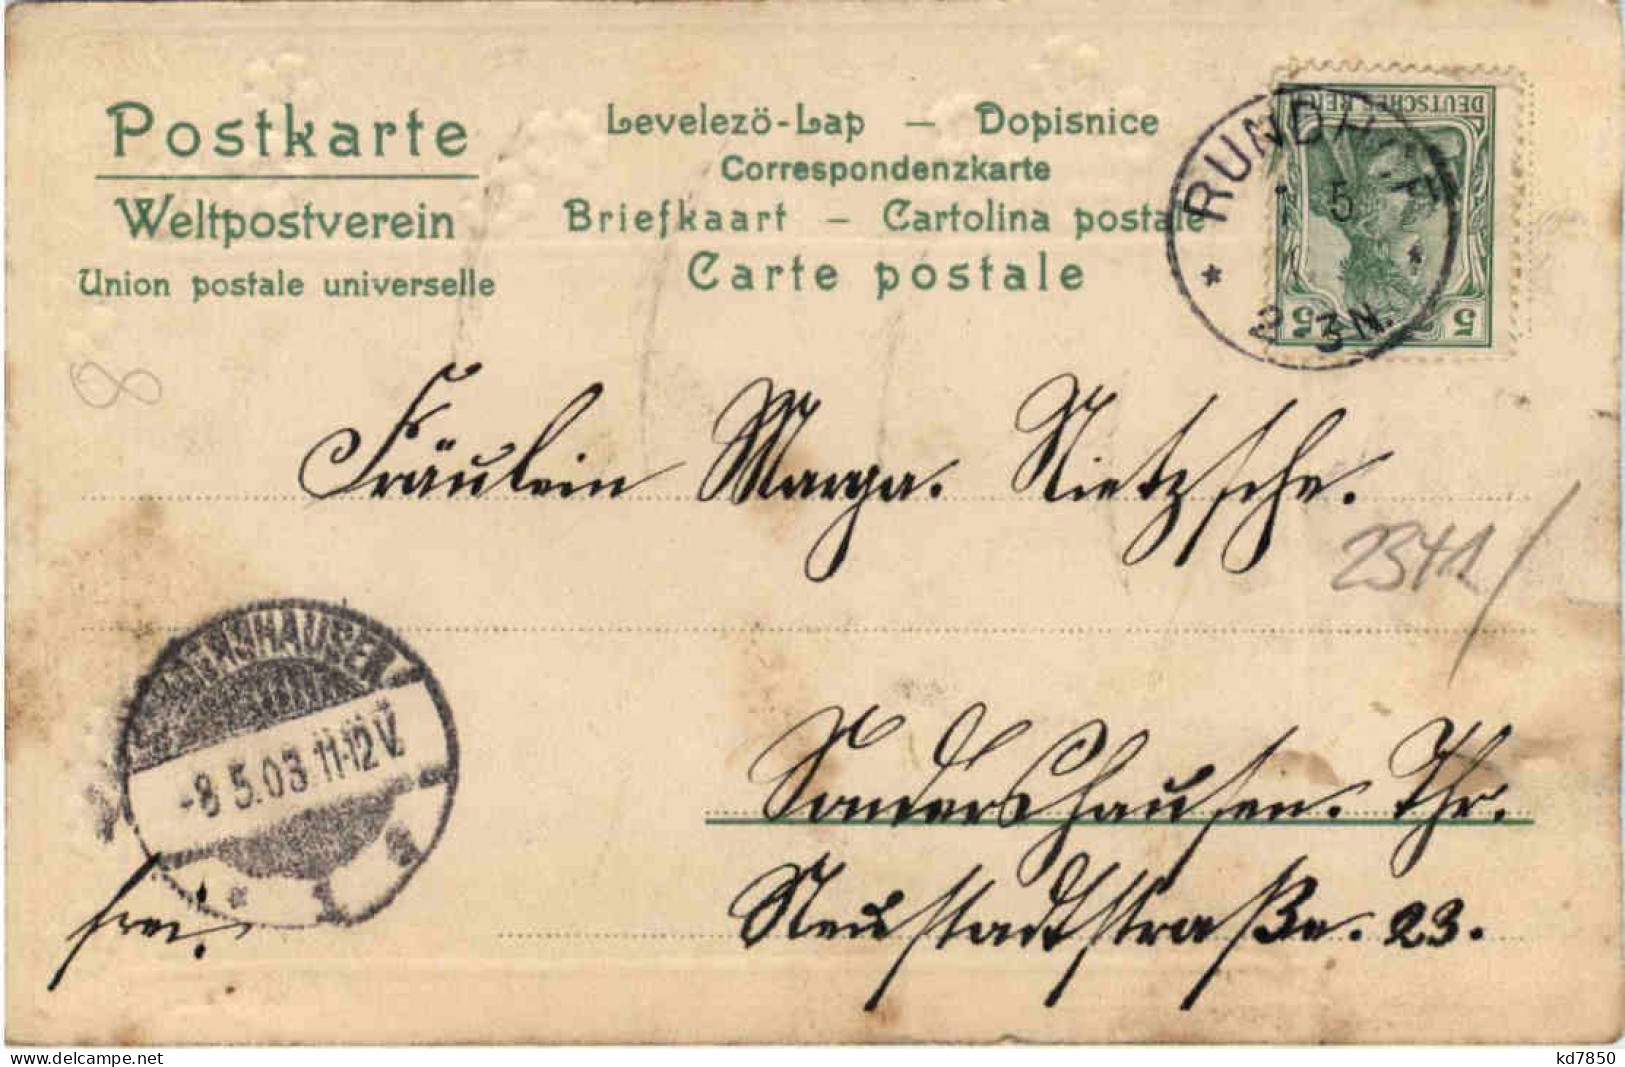 Postkarte
Weltpostverein
Union postale universelle
Levelezö-Lap — Dopisnice
Correspondenzkarte
Briefkaart — Cartolina postale
Carte postale
DEUTSCHES REICH
5 5
5
3 N.
8
Fräulein Marga. Nietzsche.
2341
-8.5.03 11-12 V.
Sondershausen. Thr.
Neustadtstraße. 23.
frei!
kd7850